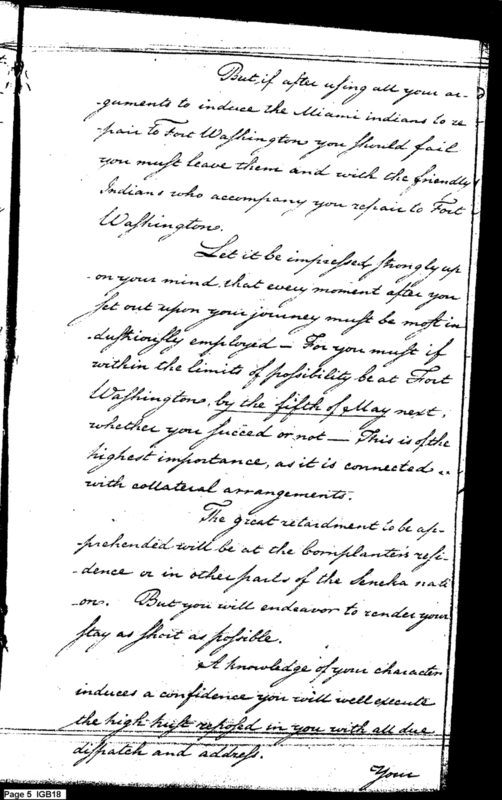 But, if after using all your ar-
-guments to induce the Miami indians to re
-pair to Fort Washington you should fail
you must leave them and with the friendly
Indians who accompany you repair to Fort
Washington.
Let it be impressed strongly up
-on your mind that every moment after you
set out upon your journey must be most in
-dustriously employed — For you must if
within the limits of possibility be at Fort
Washington, by the fifth of May next,
whether you succeed or not — This is of the
highest importance, as it is connected
with collateral arrangements.
The great retardment to be ap-
-prehended will be at the Cornplanter's resi-
-dence or in other parts of the Seneka nati
-on. But you will endeavor to render your
stay as short as possible.
A knowledge of your character
induces a confidence you will well execute
the high trust reposed in you with all due
dispatch and address.
Your
Page 5 IGB18